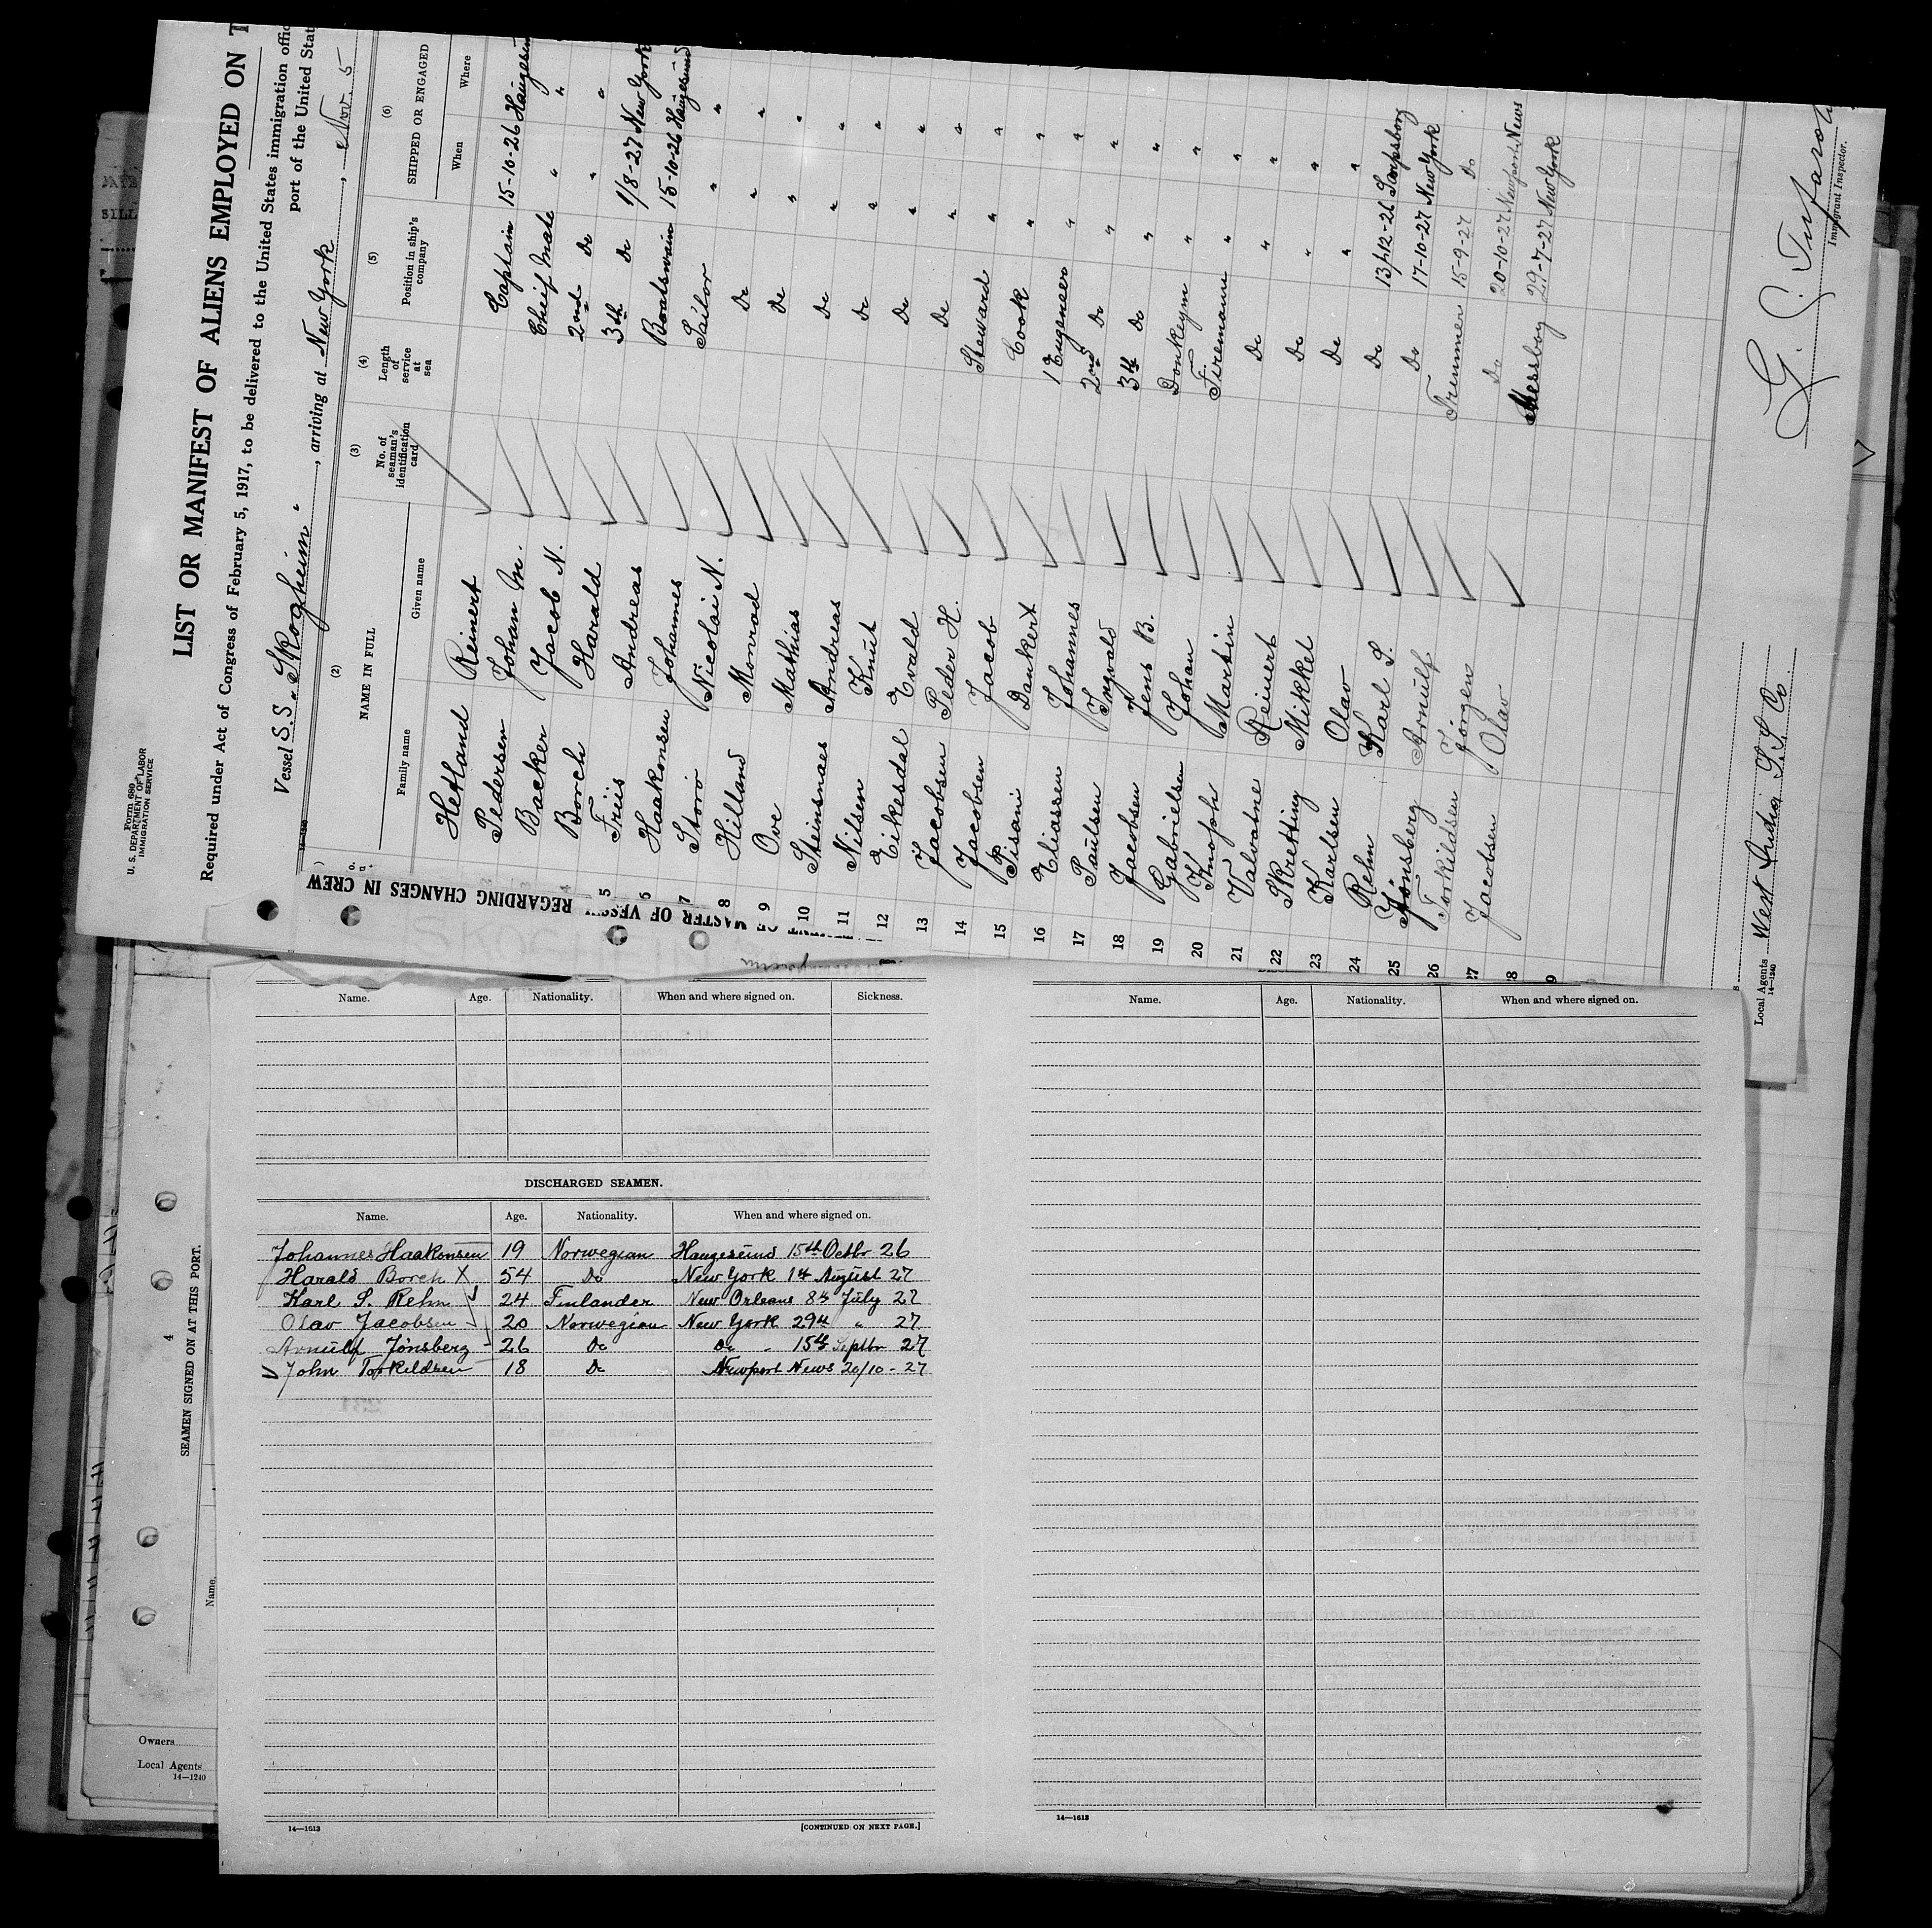 Form 680
U. S. DEPARTMENT OF LABOR
IMMIGRATION SERVICE
LIST OR MANIFEST OF ALIENS EMPLOYED ON T
Required under Act of Congress of February 5, 1917, to be delivered to the United States immigration offic
port of the United Stat
Vessel S.S. "Skogheim", arriving at New York, Nov. 5
14-1240
(2) (3) (4) (5) (6)
NAME IN FULL No. of seaman's identification card Length of service at sea Position in ship's company SHIPPED OR ENGAGED
Family name Given name When Where
Hetland Reinert Captain 15-10-26 Haugesun
Pedersen Johan M. Cheif Mate " "
Backer Jacob N. 2nd Do " "
Borch Harald 3th Do 1/8-27 New York
5 Friis Andreas Boatswain 15-10-26 Haugesund
6 Haakonsen Johannes Sailor " "
7 Storø Nicolai N. Do " "
8 Hilland Monrad Do " "
9 Ove Mathias Do " "
10 Steinsnaes Andreas Do " "
11 Nilsen Knut Do " "
12 Eikesdal Evald Do " "
13 Jacobsen Peder H. Steward " "
14 Jacobsen Jacob Cook " "
15 Pisani Dankert 1 Engeneer " "
16 Eliassen Johannes 2nd Do " "
17 Paulsen Ingvald 3th Do " "
18 Jacobsen Jens B. Donkeym " "
19 Gabrielsen Johan Firemann " "
20 Knoph Martin Do " "
21 Valvatne Reinert Do " "
22 Skretting Mikkel Do " "
23 Karlsen Olav Do 13/12-26 Sarpsborg
24 Rehn Karl S. Do 17-10-27 New York
25 Jönsberg Arnulf Tremmer 15-9-27 Do
26 Torkildsen Jørgen Do 20-10-27 Newport News
27 Jacobsen Olav Messboy 29-7-27 New York
28
9
G. S.
Immigrant Inspector.
Local Agents West India S.S. Co.
14-1240
REGARDING CHANGES IN CREW
MASTER OF VESS
Name. Age. Nationality. When and where signed on. Sickness.
DISCHARGED SEAMEN.
Name. Age. Nationality. When and where signed on.
Johannes Haakonsen 19 Norwegian Haugesund 15th Octbr 26
Harald Borch X 54 Do New York 1st August 27
Karl S. Rehn 24 Finlander New Orleans 8th July 27
Olav Jacobsen 20 Norwegian New York 29th " 27
Arnulf Jønsberg 26 Do Do 15th Septbr 27
John Torkildsen 18 Do Newport News 20/10-27
14-1613
[CONTINUED ON NEXT PAGE.]
Name. Age. Nationality. When and where signed on.
14-1613
4
SEAMEN SIGNED ON AT THIS PORT.
Name.
Owners
Local Agents
14-1240